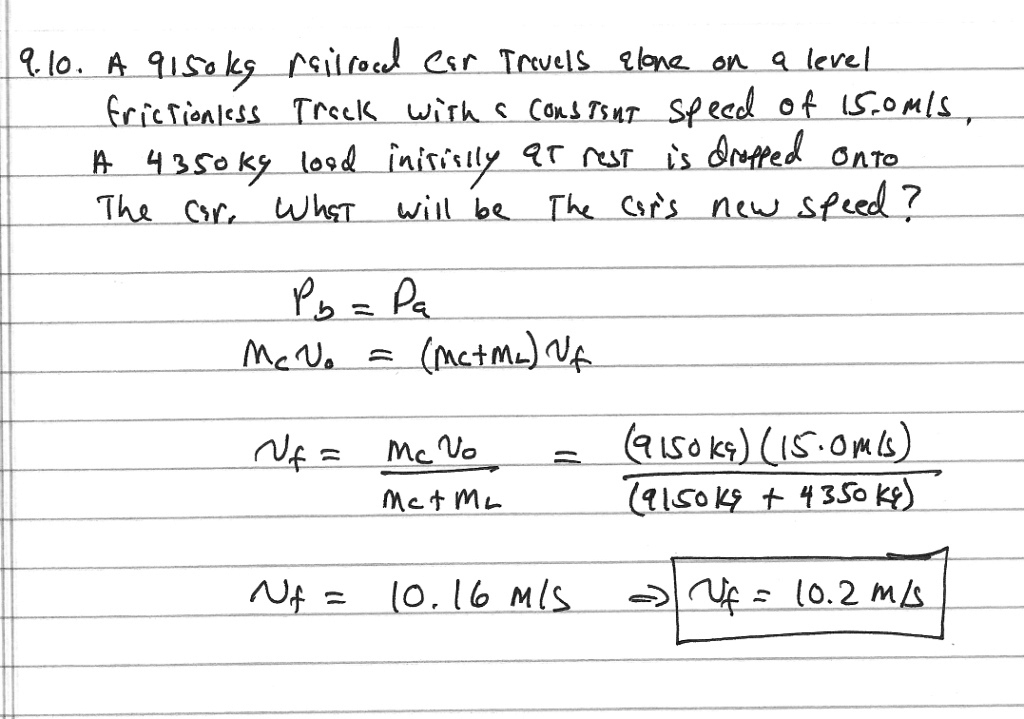 9.10. A 9150 kg railroad car travels alone on a level
frictionless track with a constant speed of 15.0 m/s.
A 4350 kg load initially at rest is dropped onto
The car. What will be the car's new speed?
Pb = Pa
mcv₀ = (mc+mL)vf
vf = mcv₀ / mc+mL = (9150 kg)(15.0 m/s) / (9150 kg + 4350 kg)
vf = 10.16 m/s ⇒ vf = 10.2 m/s